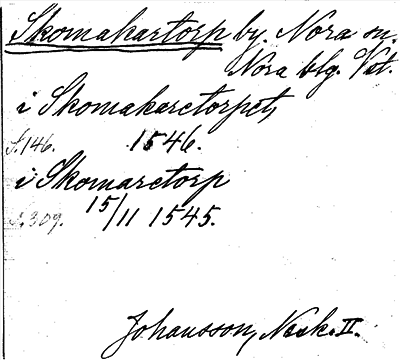 Skomakartorp by. Nora sn.
Nora blg. Vst.
i Skomakaretorpet,
s. 146. 1546.
i Skomaretorp
s. 309. 15/11 1545.
Johansson, Nask. II.